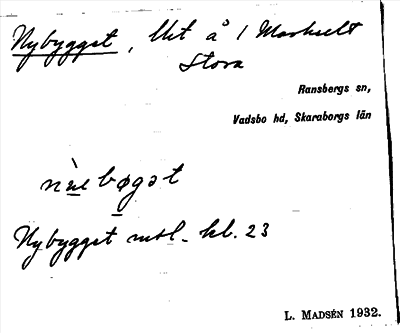 Nybygget, lht å 1 Markult
Stora
Ransbergs sn,
Vadsbo hd, Skaraborgs län
Nybygget mtl. kl. 23
L. MADSÉN 1932.